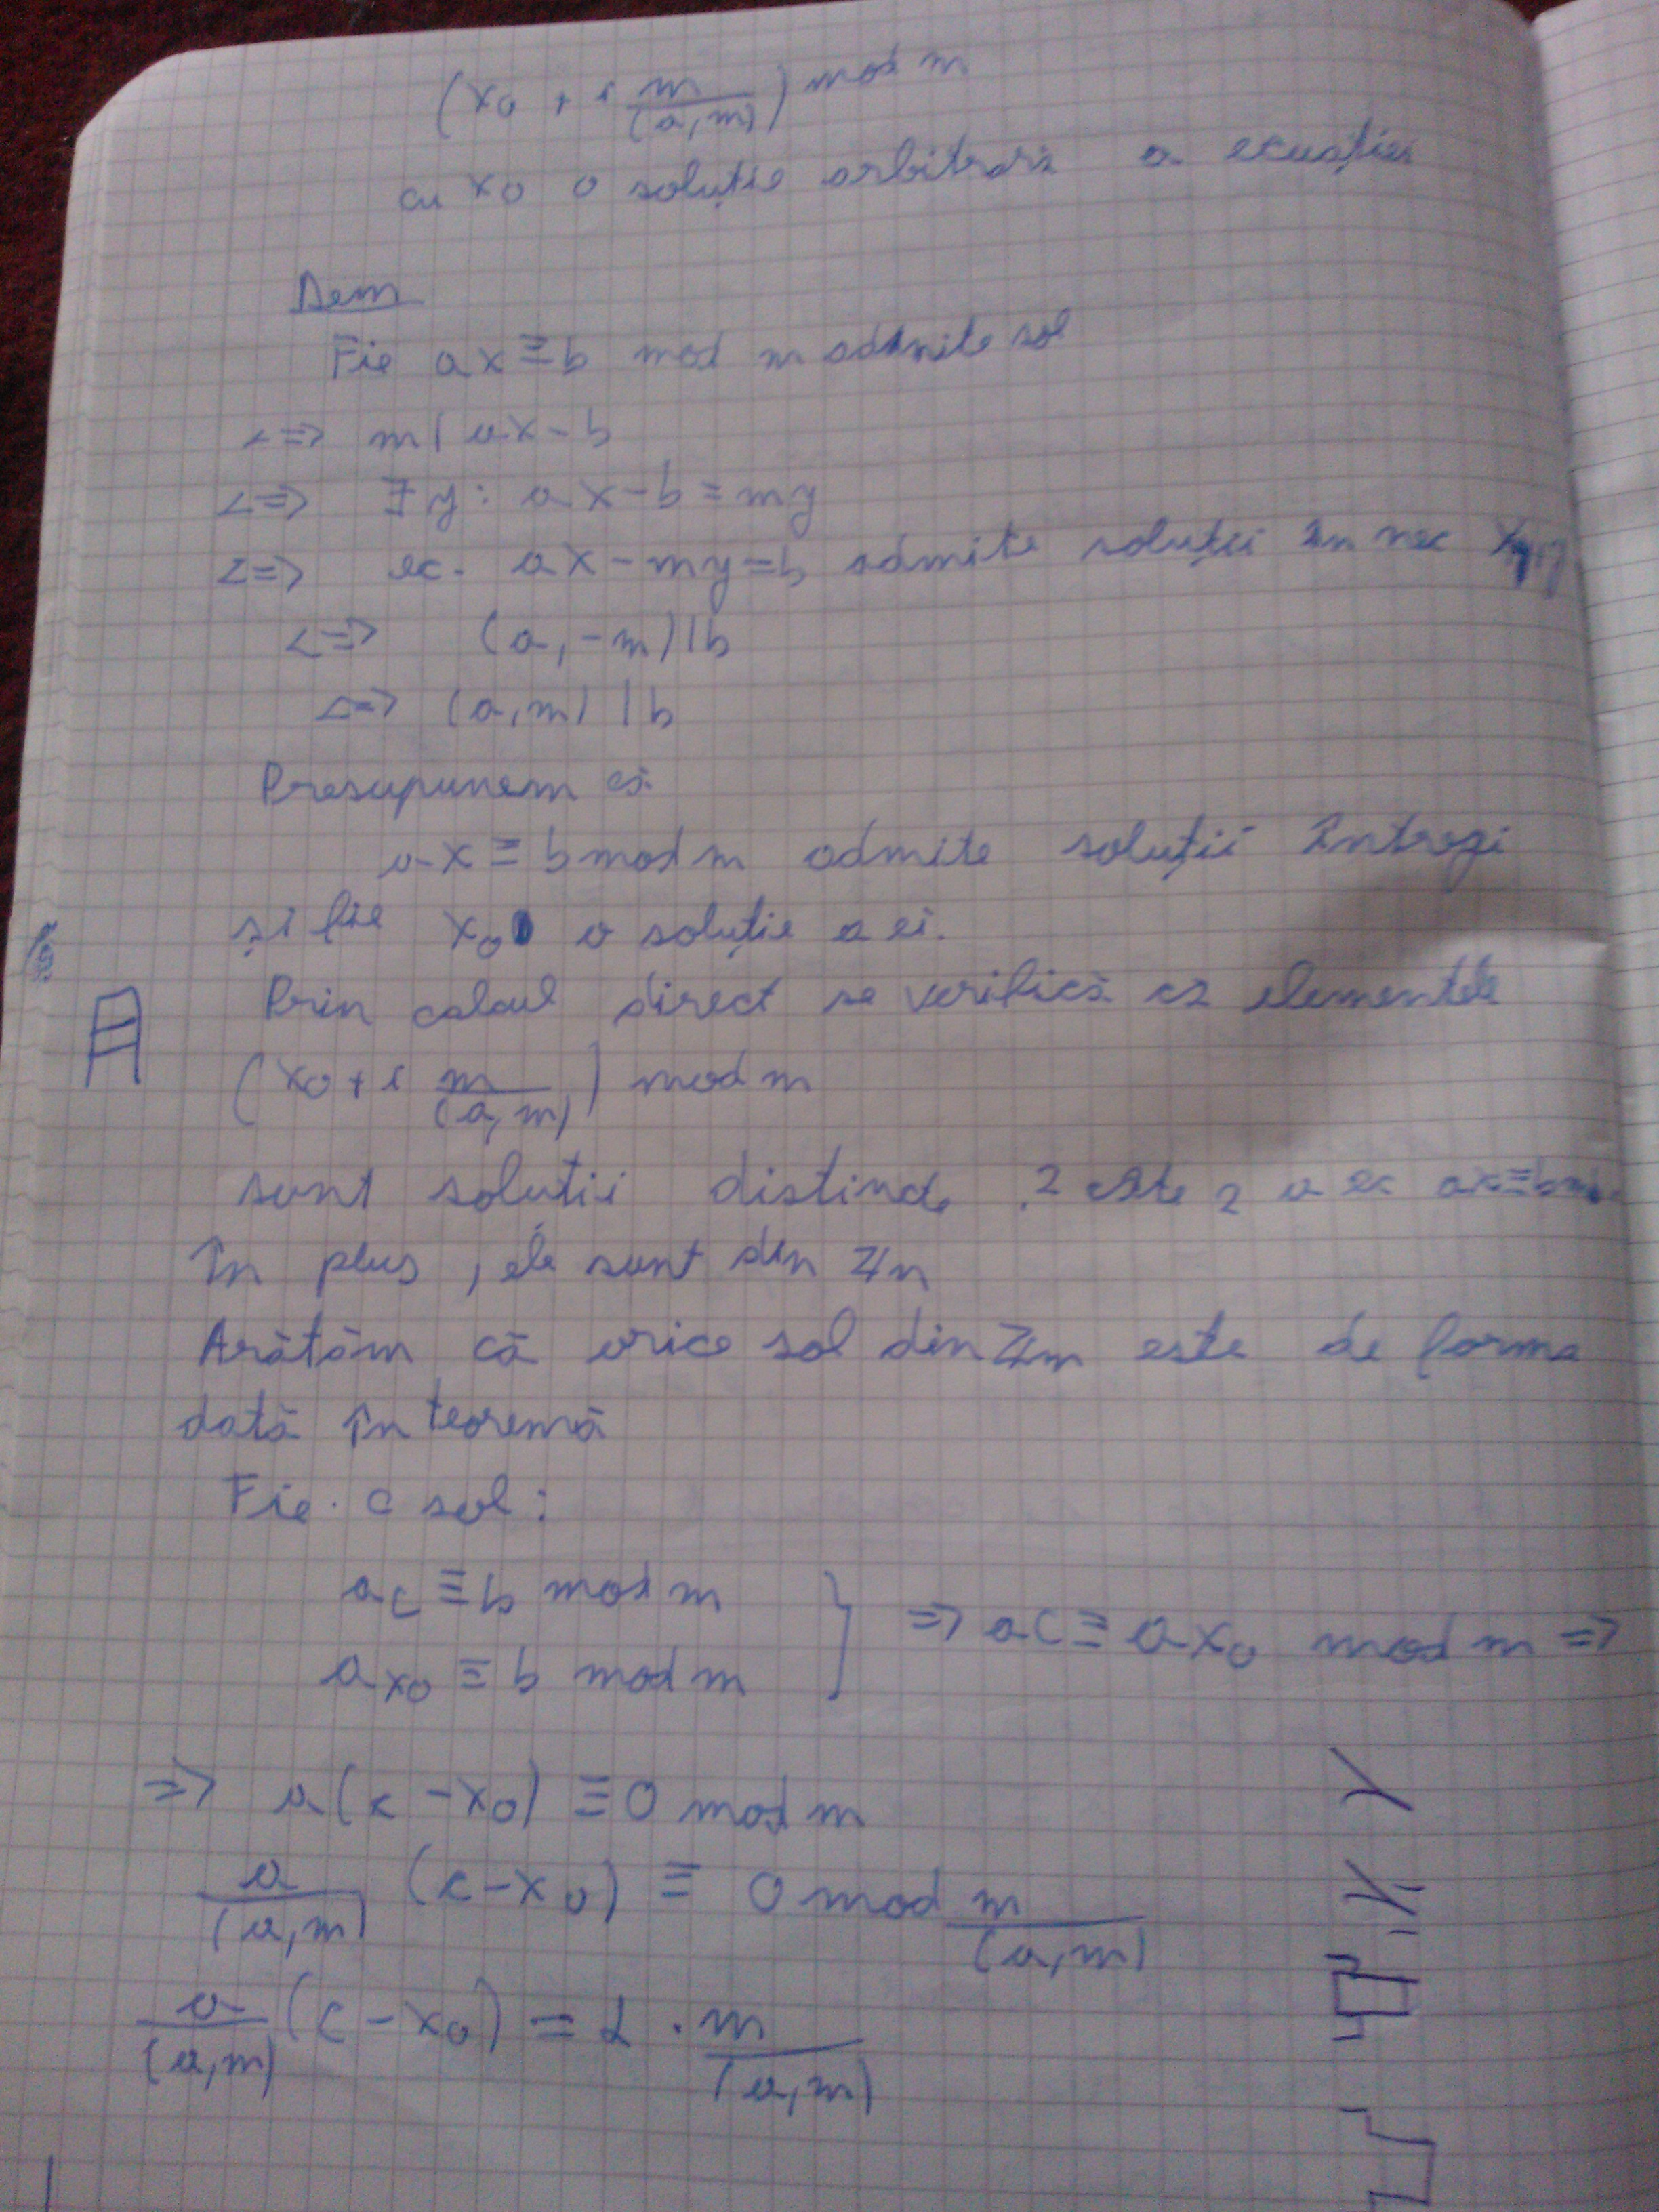 (x0 + i m/(a,m)) mod m
cu x0 o soluție arbitrară a ecuației
Dem
Fie ax ≡ b mod m admite sol
<=> m | ax - b
<=> ∃ y : ax - b = my
<=> ec. ax - my = b admite soluții în nec x,y
<=> (a, -m) | b
<=> (a, m) | b
Presupunem că
ax ≡ b mod m admite soluții întregi
și fie x0 o soluție a ei.
Prin calcul direct se verifică că elementele
(x0 + i m/(a,m)) mod m
sunt soluții distincte 2 câte 2 a ec ax ≡ b
În plus, ele sunt din ℤm
Arătăm că orice sol din ℤm este de forma
dată în teoremă
Fie c sol :
ac ≡ b mod m
ax0 ≡ b mod m } => ac ≡ ax0 mod m =>
=> a(c - x0) ≡ 0 mod m
a/(a,m) (c - x0) ≡ 0 mod m/(a,m)
a/(a,m) (c - x0) = α · m/(a,m)